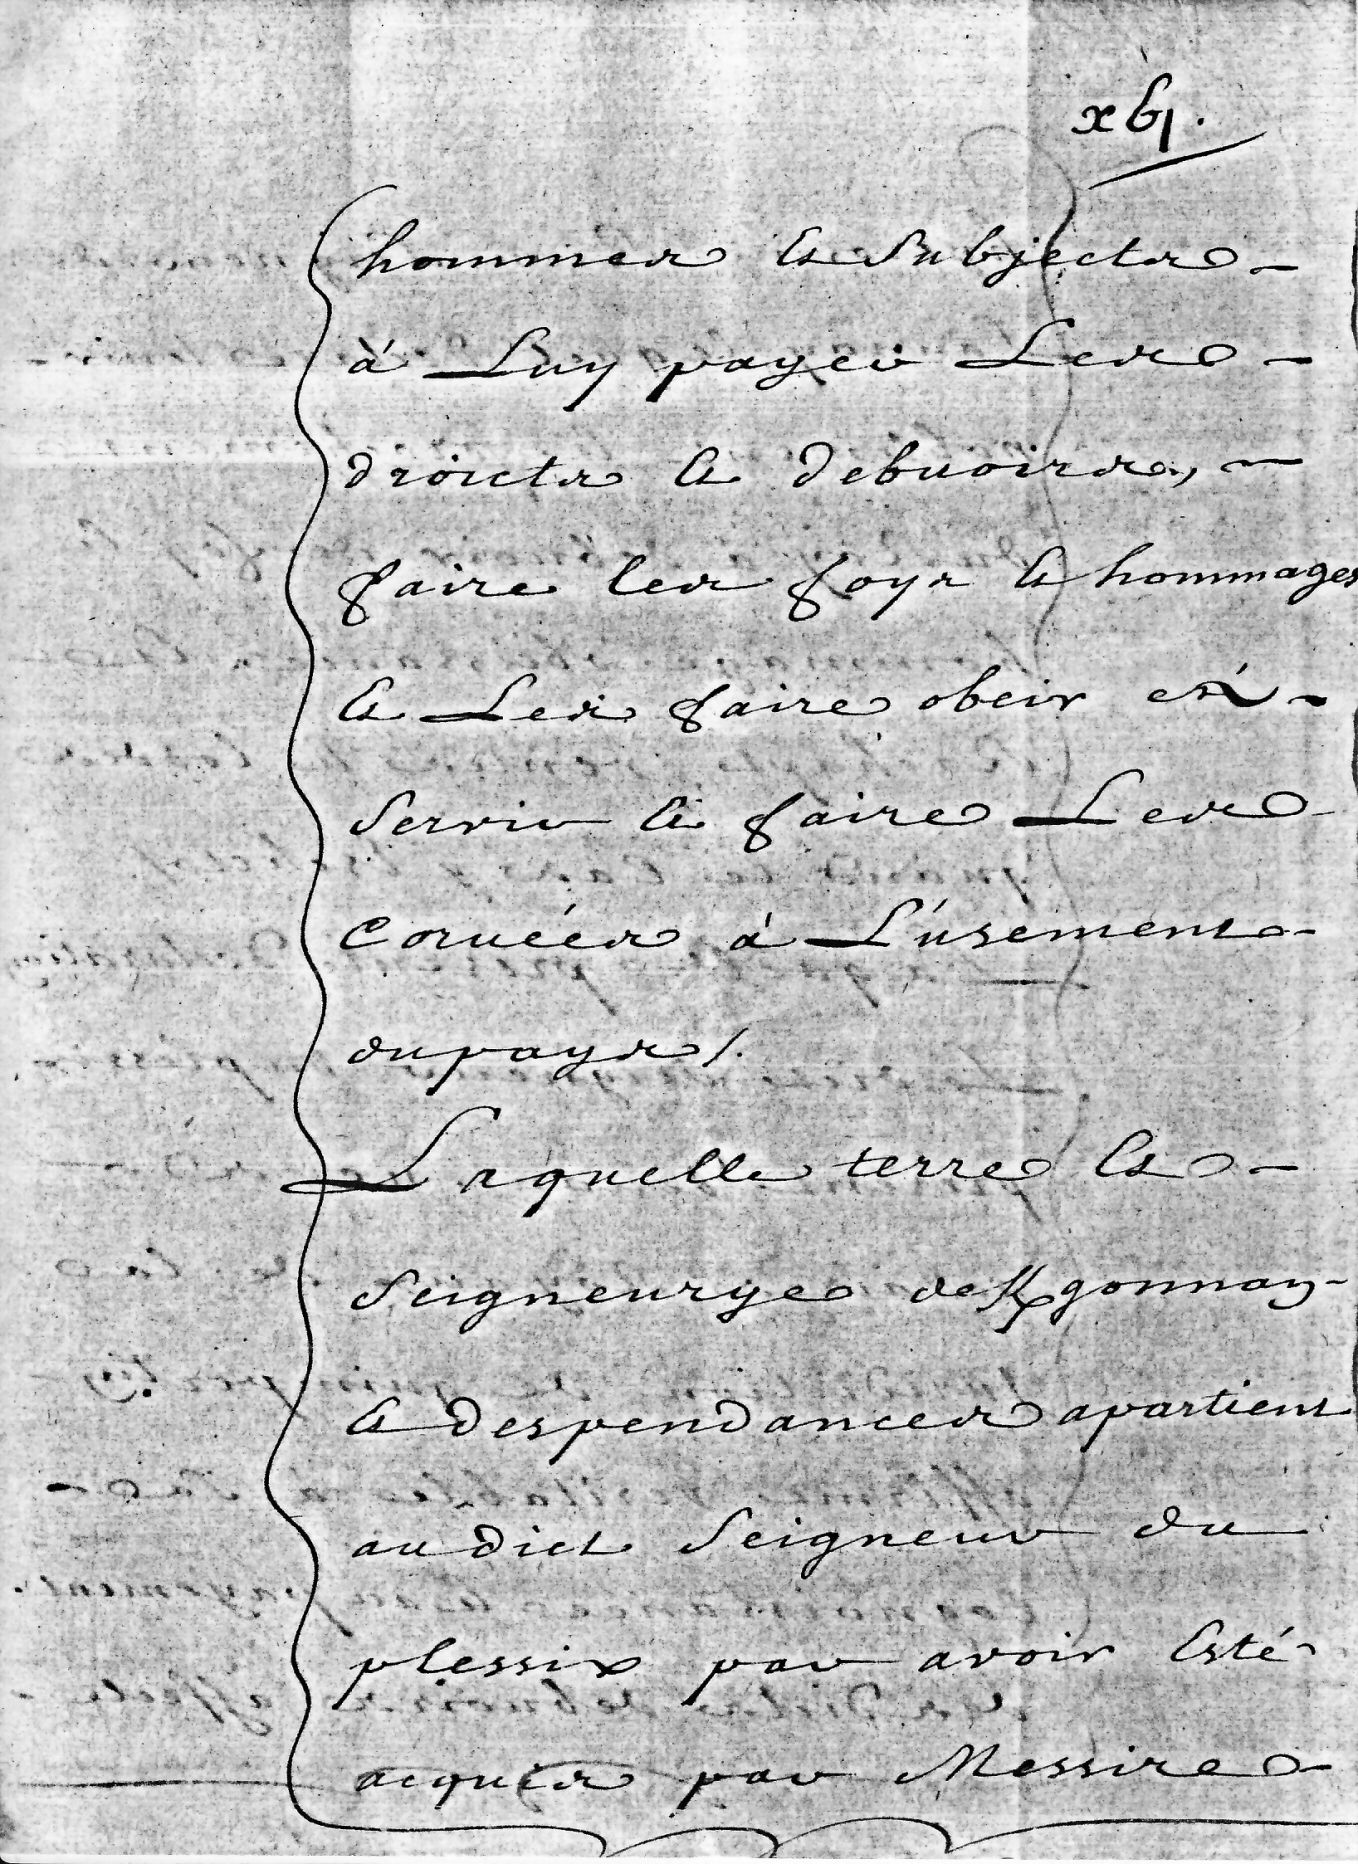 xvj.
hommes et subjects
à Luy payer Les
droicts et debuoirs,
faire les foys et hommages
et Les faire obeir et
servir et faire Les
Coruéés à L'usement
du pays /.
Laquelle terre et
Seigneurye de Kgonnay
et despendances apartient
au dict Seigneur du
plessix par avoir esté
acquis par Messire